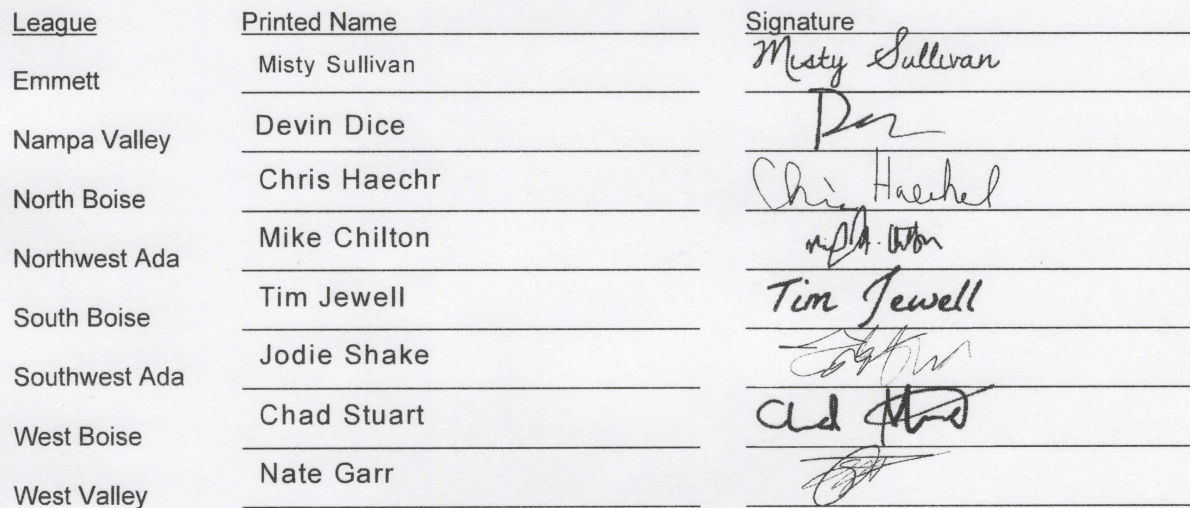 League Printed Name Signature
Emmett Misty Sullivan Misty Sullivan
Nampa Valley Devin Dice
North Boise Chris Haechr Chris Haechel
Northwest Ada Mike Chilton
South Boise Tim Jewell Tim Jewell
Southwest Ada Jodie Shake
West Boise Chad Stuart Chad
West Valley Nate Garr